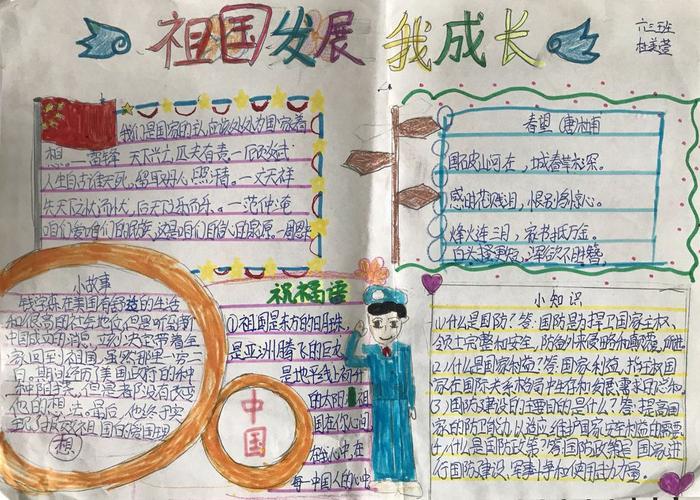 祖国发展 我成长
六三班
杜美萱
我们是国家的主人,应该处处为国家着
想。—雷锋 天下兴亡,匹夫有责。—顾炎武
人生自古谁无死,留取丹心照汗青。—文天祥
先天下之忧而忧,后天下之乐而乐。—范仲淹
咱们爱咱们的民族,这是咱们自信心的泉源。—周恩来
春望 (唐)杜甫
国破山河在,城春草木深。
感时花溅泪,恨别鸟惊心。
烽火连三月,家书抵万金。
白头搔更短,浑欲不胜簪。
小故事
钱学森在美国有舒益的生活
和很高的社会地位,但是听到新
中国成立的消息,立刻决定带着全
家回到祖国,虽然那里一穷二
白。期间经历美国政府的种
种阻挠,但是都没有改变
他的想法。最后,他终于实
现了报效祖国的
想
祝福语
①祖国是东方的日月珠,
是亚洲腾飞的巨龙
是地平线上初升
的太阳。祖
国在你心间
在我心中,在
每一中国人的心中
中
国
小知识
1、什么是国防?答:国防是为捍卫国家主权、
领土完整和安全,防备外来侵略和颠覆,所进
2、什么是国家利益?答:国家利益
家在国际关系格局中生存和发展需求的总和。
3、国防建设的主要目的是什么?答:提高国
家的国防能力,以适应维护国家安全利益的需要。
4、什么是国防政策?答:国防政策是国家进
行国防建设、军事斗争和使用武力